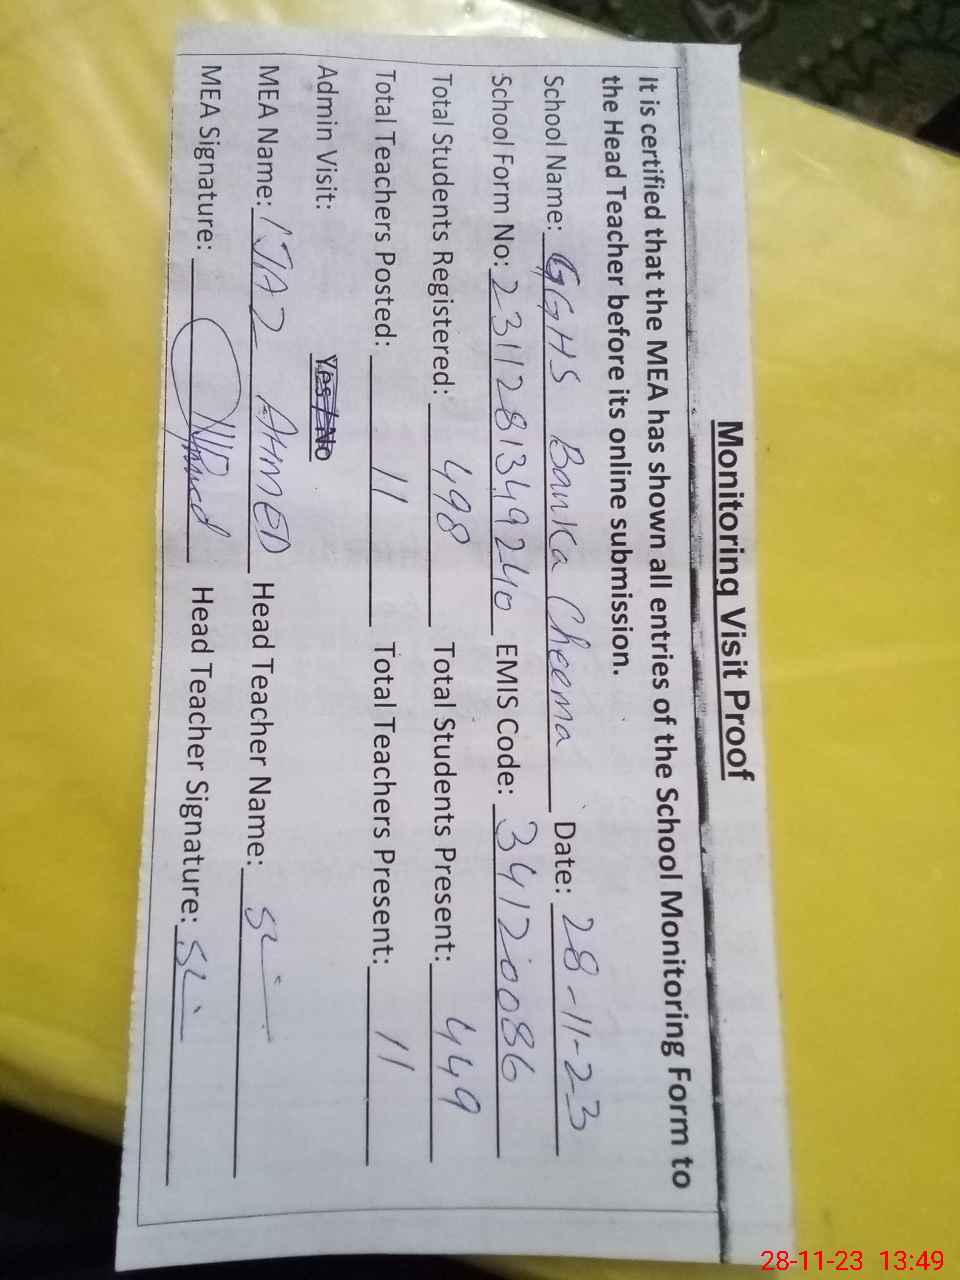 Monitoring Visit Proof
It is certified that the MEA has shown all entries of the School Monitoring Form to
the Head Teacher before its online submission.
School Name: GGHS Banka Cheema Date: 28-11-23
School Form No: 231128134924o EMIS Code: 34120086
Total Students Registered: 498 Total Students Present: 449
Total Teachers Posted: 11 Total Teachers Present: 11
Admin Visit: Yes / No
MEA Name: IJAZ AHMED Head Teacher Name:
MEA Signature: Head Teacher Signature:
28-11-23 13:49